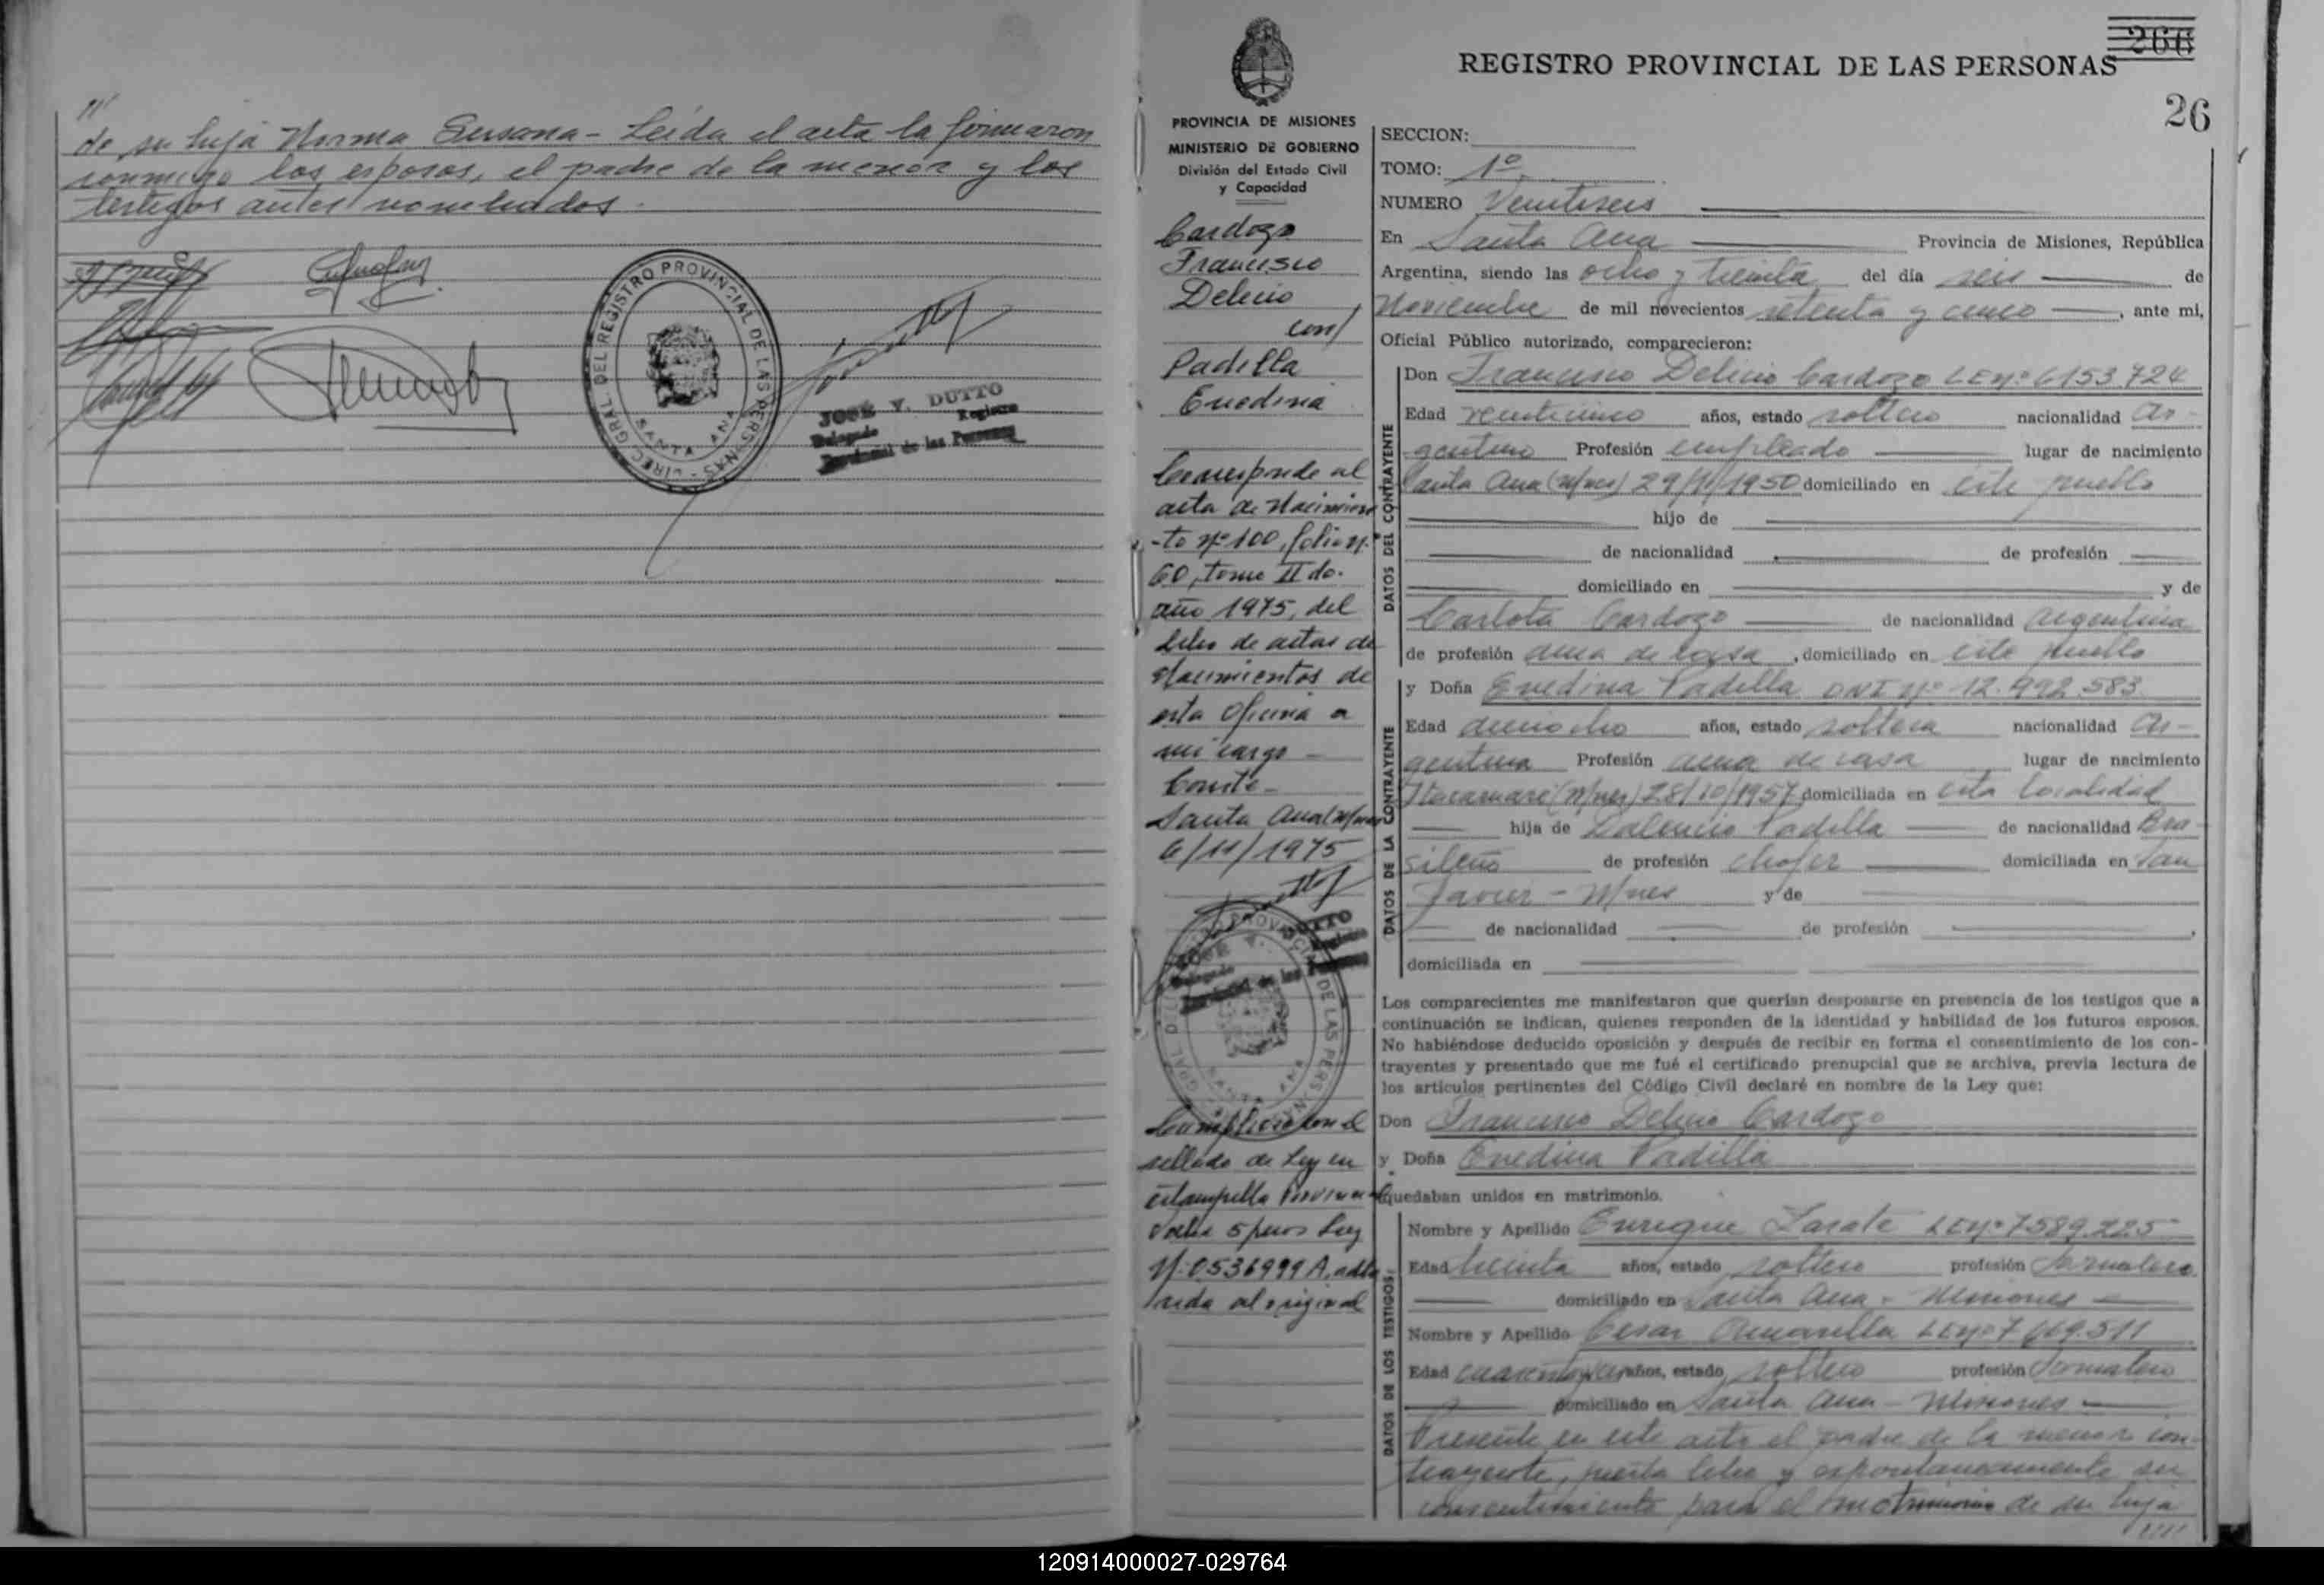 11
de su hija Norma Susana - Leída el acta la firmaron
conmigo los esposos, el padre de la menor y los
testigos antes nombrados.
DIREC. GRAL. DEL REGISTRO PROVINCIAL DE LAS PERSONAS
SANTA ANA
JOSÉ V. DUTTO
Delegado Registro
Provincial de las Personas
266
REGISTRO PROVINCIAL DE LAS PERSONAS
26
PROVINCIA DE MISIONES
MINISTERIO DE GOBIERNO
División del Estado Civil
y Capacidad
Cardozo
Francisco
Delicio
con/
Padilla
Enedina
Corresponde al
acta de Nacimien
-to nº 100, folio nº
60, tomo II do.
año 1975, del
Libro de actas de
Nacimientos de
esta Oficina a
mi cargo -
Conste -
Santa Ana (Mnes)
6/11/1975
JOSÉ V. DUTTO
Delegado Registro
Provincial de las Personas
DIREC. GRAL. DEL REGISTRO PROVINCIAL DE LAS PERSONAS
SANTA ANA
con el
sellado de Ley en
estampilla Provincial
Valor 5 pesos Ley
Nº 0536999 A, adhe
rida al original
SECCION:
TOMO: 1º
NUMERO Veintiseis
En Santa Ana Provincia de Misiones, República
Argentina, siendo las ocho y treinta del día seis de
Noviembre de mil novecientos setenta y cinco, ante mi,
Oficial Público autorizado, comparecieron:
DATOS DEL CONTRAYENTE
Don Francisco Delicio Cardozo L E nº 6153.724
Edad veinticinco años, estado soltero nacionalidad Ar-
gentino Profesión empleado lugar de nacimiento
Santa Ana (Mnes) 29/1/1950 domiciliado en este pueblo
hijo de
de nacionalidad de profesión
domiciliado en y de
Carlota Cardozo de nacionalidad argentina
de profesión ama de casa, domiciliado en este pueblo
DATOS DE LA CONTRAYENTE
y Doña Enedina Padilla DNI nº 12.992.583
Edad dieciocho años, estado soltera nacionalidad Ar-
gentina Profesión ama de casa lugar de nacimiento
Itacaruaré (Mnes) 28/10/1957 domiciliada en esta localidad
hija de Padilla de nacionalidad Bra-
sileño de profesión chofer domiciliada en San
Javier - Mnes y de
de nacionalidad de profesión,
domiciliada en
Los comparecientes me manifestaron que querían desposarse en presencia de los testigos que a
continuación se indican, quienes responden de la identidad y habilidad de los futuros esposos.
No habiéndose deducido oposición y después de recibir en forma el consentimiento de los con-
trayentes y presentado que me fué el certificado prenupcial que se archiva, previa lectura de
los artículos pertinentes del Código Civil declaré en nombre de la Ley que:
Don Francisco Delicio Cardozo
y Doña Enedina Padilla
quedaban unidos en matrimonio.
DATOS DE LOS TESTIGOS:
Nombre y Apellido Enrique Zarate L E nº 7589.225
Edad treinta años, estado soltero profesión Jornalero
domiciliado en Santa Ana - Misiones
Nombre y Apellido Cesar Amarilla L E nº 7.669.511
Edad años, estado soltero profesión Jornalero
domiciliado en Santa Ana - Misiones
Presente en este acto el padre de la menor con-
trayente, presta libre y espontaneamente su
consentimiento para el matrimonio de su hija
////
120914000027-029764